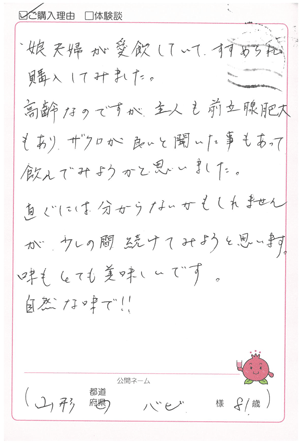 ☑ご購入理由 □体験談
娘夫婦が愛飲していて、すすめられ
購入してみました。
高齢なのですが、主人も前立腺肥大
もあり、ザクロが良いと聞いた事もあって
飲んでみようかと思いました。
直ぐには分からないかもしれません
が、少しの間続けてみようと思います。
味もとても美味しいです。
自然な味で!!
公開ネーム
(山形 都道府県 バビ 様 81歳)